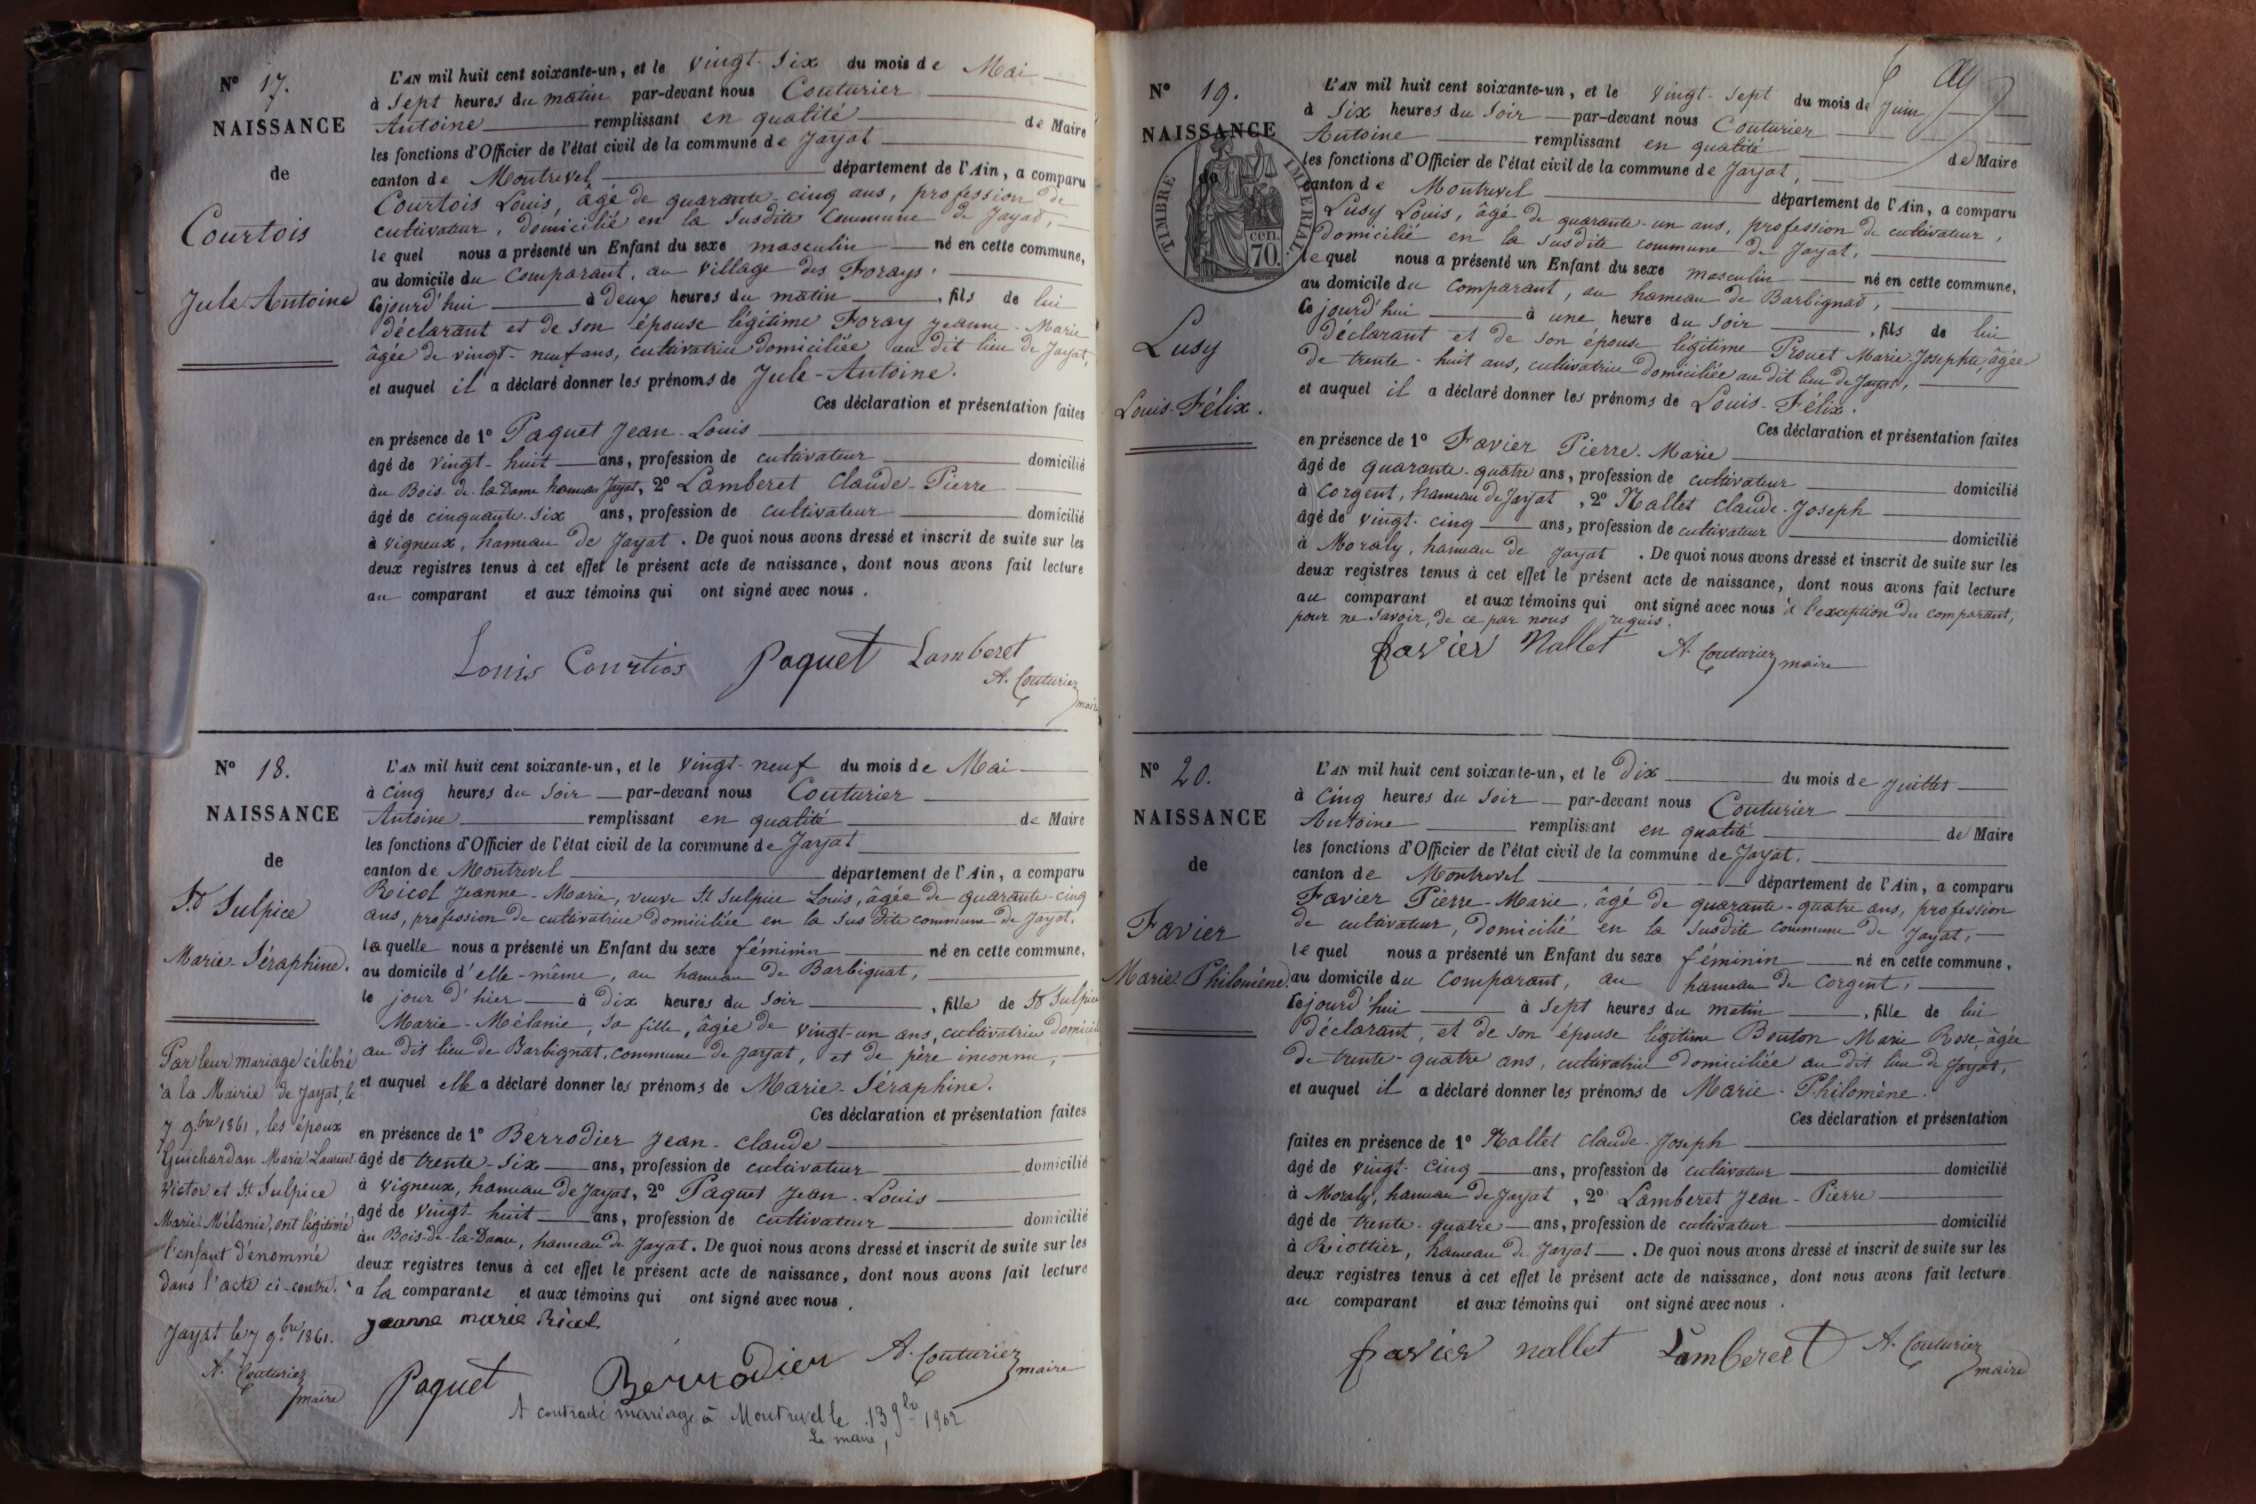 N° 17.
NAISSANCE
de
Courtois
Jule Antoine
L'AN mil huit cent soixante-un, et le vingt-six du mois de Mai
à sept heures du matin par-devant nous Couturier
Antoine remplissant en qualité de Maire
les fonctions d'Officier de l'état civil de la commune de Jayat
canton de Montrevel département de l'Ain, a comparu
Courtois Louis, âgé de quarante-cinq ans, profession de
cultivateur, domicilié en la susdite commune de Jayat,
lequel nous a présenté un Enfant du sexe masculin né en cette commune,
au domicile du comparant, au village des Forays,
cejourd'hui à deux heures du matin, fils de lui
déclarant et de son épouse légitime Foray Jeanne-Marie
âgée de vingt-neuf ans, cultivatrice domiciliée au dit lieu de Jayat,
et auquel il a déclaré donner les prénoms de Jule-Antoine.
Ces déclaration et présentation faites
en présence de 1° Paquet Jean-Louis
âgé de vingt-huit ans, profession de cultivateur domicilié
au Bois-de-la-Dame hameau Jayat, 2° Lamberet Claude-Pierre
âgé de cinquante-six ans, profession de cultivateur domicilié
à Vigneux, hameau de Jayat. De quoi nous avons dressé et inscrit de suite sur les
deux registres tenus à cet effet le présent acte de naissance, dont nous avons fait lecture
au comparant et aux témoins qui ont signé avec nous.
Louis Courtios Paquet Lamberet
A. Couturier
maire
N° 18.
NAISSANCE
de
St Sulpice
Marie-Séraphine.
Par leur mariage célébré
à la Mairie de Jayat, le
7 9.bre 1861, les époux
Guichardan Marie Laurent
Victor et St Sulpice
Marie Mélanie, ont légitimé
l'enfant dénommé
dans l'acte ci-contre.
Jayat le 7 9.bre 1861.
A. Couturier
maire
L'AN mil huit cent soixante-un, et le vingt-neuf du mois de Mai
à cinq heures du soir par-devant nous Couturier
Antoine remplissant en qualité de Maire
les fonctions d'Officier de l'état civil de la commune de Jayat
canton de Montrevel département de l'Ain, a comparu
Ricol Jeanne-Marie, veuve St Sulpice Louis, âgée de quarante-cinq
ans, profession de cultivatrice domiciliée en la susdite commune de Jayat.
laquelle nous a présenté un Enfant du sexe féminin né en cette commune,
au domicile d'elle-même, au hameau de Barbignat,
le jour d'hier à dix heures du soir, fille de St Sulpice
Marie-Mélanie, sa fille, âgée de vingt-un ans, cultivatrice domiciliée
au dit lieu de Barbignat, commune de Jayat, et de père inconnu,
et auquel elle a déclaré donner les prénoms de Marie-Séraphine.
Ces déclaration et présentation faites
en présence de 1° Berrodier Jean-Claude
âgé de trente-six ans, profession de cultivateur domicilié
à Vigneux, hameau de Jayat, 2° Paquet Jean-Louis
âgé de vingt-huit ans, profession de cultivateur domicilié
au Bois-de-la-Dame, hameau de Jayat. De quoi nous avons dressé et inscrit de suite sur les
deux registres tenus à cet effet le présent acte de naissance, dont nous avons fait lecture
à la comparante et aux témoins qui ont signé avec nous.
jeanne marie Ricol
Paquet Berrodier A. Couturier
maire
A contracté mariage à Montrevel le 13 9bre 1902
Le maire,
N° 19.
NAISSANCE
de
TIMBRE IMPERIAL
70. cen.
Lusy
Louis-Félix.
L'AN mil huit cent soixante-un, et le vingt-sept du mois de Juin
à six heures du soir par-devant nous Couturier
Antoine remplissant en qualité de Maire
les fonctions d'Officier de l'état civil de la commune de Jayat,
canton de Montrevel département de l'Ain, a comparu
Lusy Louis, âgé de quarante-un ans, profession de cultivateur,
domicilié en la susdite commune de Jayat,
lequel nous a présenté un Enfant du sexe masculin né en cette commune,
au domicile du comparant, au hameau de Barbignat,
cejourd'hui à une heure du soir, fils de lui
déclarant et de son épouse légitime Prouet Marie-Josephte, âgée
de trente-huit ans, cultivatrice domiciliée au dit lieu de Jayat,
et auquel il a déclaré donner les prénoms de Louis-Félix.
Ces déclaration et présentation faites
en présence de 1° Favier Pierre-Marie
âgé de quarante-quatre ans, profession de cultivateur domicilié
à Corgent, hameau de Jayat, 2° Nallet Claude-Joseph
âgé de vingt-cinq ans, profession de cultivateur domicilié
à Moraly, hameau de Jayat. De quoi nous avons dressé et inscrit de suite sur les
deux registres tenus à cet effet le présent acte de naissance, dont nous avons fait lecture
au comparant et aux témoins qui ont signé avec nous à l'exception du comparant,
pour ne savoir, de ce par nous requis.
favier Nallet A. Couturier
maire
N° 20.
NAISSANCE
de
Favier
Marie Philomène.
L'AN mil huit cent soixante-un, et le dix du mois de Juillet
à cinq heures du soir par-devant nous Couturier
Antoine remplissant en qualité de Maire
les fonctions d'Officier de l'état civil de la commune de Jayat.
canton de Montrevel département de l'Ain, a comparu
Favier Pierre-Marie, âgé de quarante-quatre ans, profession
de cultivateur, domicilié en la susdite commune de Jayat,
lequel nous a présenté un Enfant du sexe féminin né en cette commune,
au domicile du comparant, au hameau de Corgent,
cejourd'hui à sept heures du matin, fille de lui
déclarant, et de son épouse légitime Bouton Marie Rose, âgée
de trente-quatre ans, cultivatrice domiciliée au dit lieu de Jayat,
et auquel il a déclaré donner les prénoms de Marie-Philomène.
Ces déclaration et présentation
faites en présence de 1° Nallet Claude-Joseph
âgé de vingt-cinq ans, profession de cultivateur domicilié
à Moraly, hameau de Jayat, 2° Lamberet Jean-Pierre
âgé de trente-quatre ans, profession de cultivateur domicilié
à Riottier, hameau de Jayat. De quoi nous avons dressé et inscrit de suite sur les
deux registres tenus à cet effet le présent acte de naissance, dont nous avons fait lecture
au comparant et aux témoins qui ont signé avec nous.
favier nallet Lamberet A. Couturier
maire